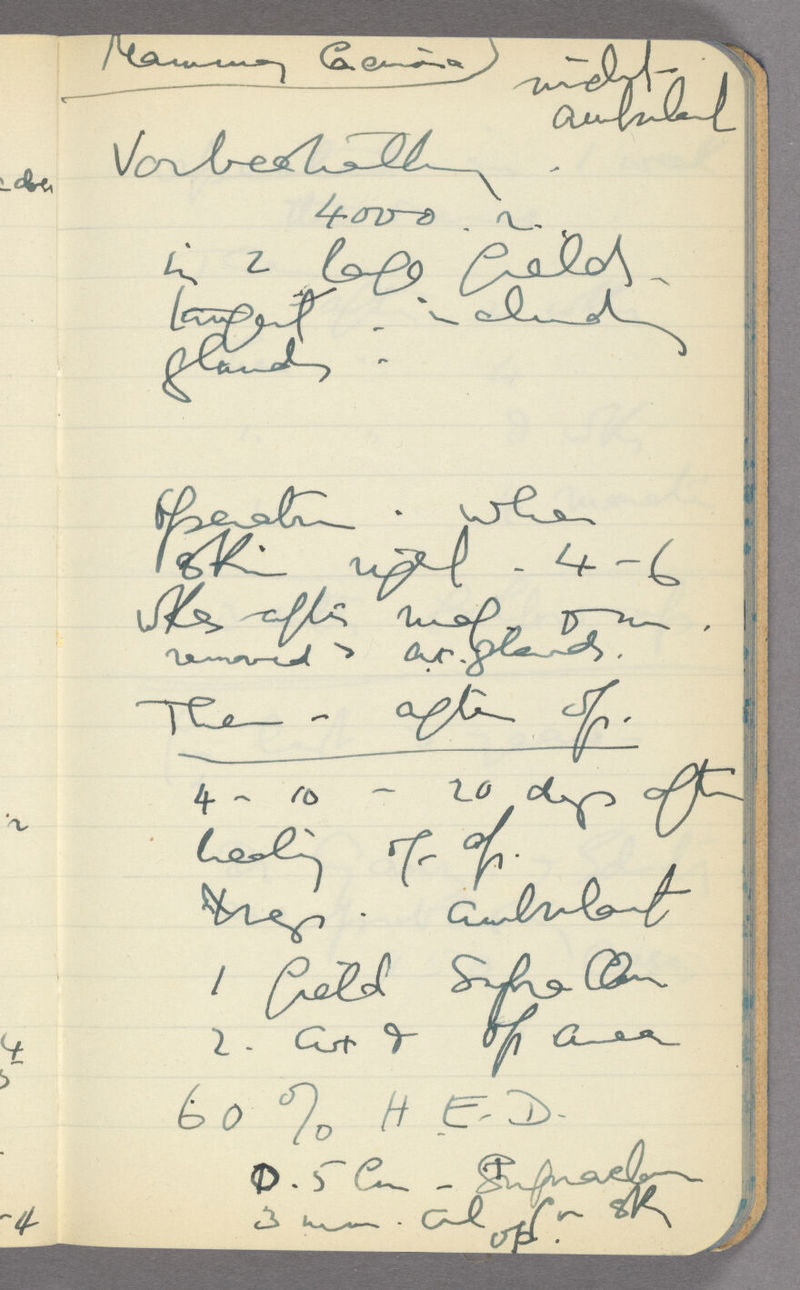 Mammary Carcinoma
nicht
ambulant
Vorbestrahlung.
4000. r.
in 2 large fields.
tangent. including
glands.
Operation. when
skin right. 4-6
wks after
removed ax. glands.
Then - after op.
4 - 10 - 20 days after
healing of op.
Xrays. ambulant
1 field Supra Clav
2. ax & op area
60 % H. E. D.
0.5 Cm - Supraclav
3 mm. al for sk
op.